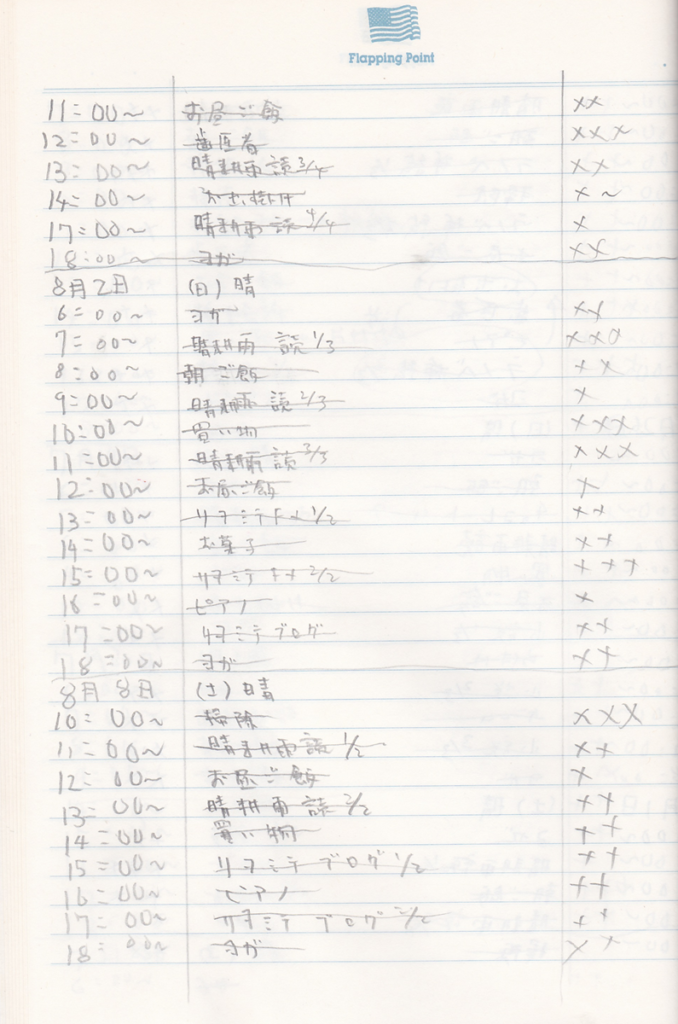 Flapping Point
11:00~ お昼ご飯 ××
12:00~ 歯医者 ×××
13:00~ 晴耕雨読3/4 ××
14:00~ お出掛け ×~
17:00~ 晴耕雨読4/4 ×
18:00~ ヨガ ××
8月2日 (日)晴
6:00~ ヨガ ××
7:00~ 晴耕雨読1/3 ××○
8:00~ 朝ご飯 ××
9:00~ 晴耕雨読2/3 ×
10:00~ 買い物 ×××
11:00~ 晴耕雨読3/3 ×××
12:00~ お昼ご飯 ×
13:00~ リヲミテ 1/2 ××
14:00~ お菓子 ××
15:00~ リヲミテ 2/2 ×××
16:00~ ピアノ ×
17:00~ リヲミテブログ ××
18:00~ ヨガ ××
8月8日 (土)晴
10:00~ 掃除 ×××
11:00~ 晴耕雨読1/2 ××
12:00~ お昼ご飯 ×
13:00~ 晴耕雨読2/2 ××
14:00~ 買い物 ××
15:00~ リヲミテブログ1/2 ××
16:00~ ピアノ ××
17:00~ リヲミテブログ2/2 ××
18:00~ ヨガ ××